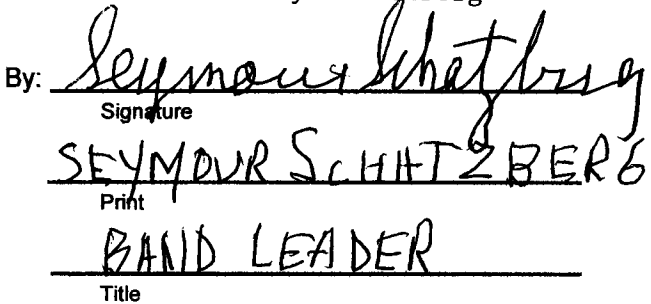 By: Seymour Schatzberg
Signature
SEYMOUR SCHATZBERG
Print
BAND LEADER
Title